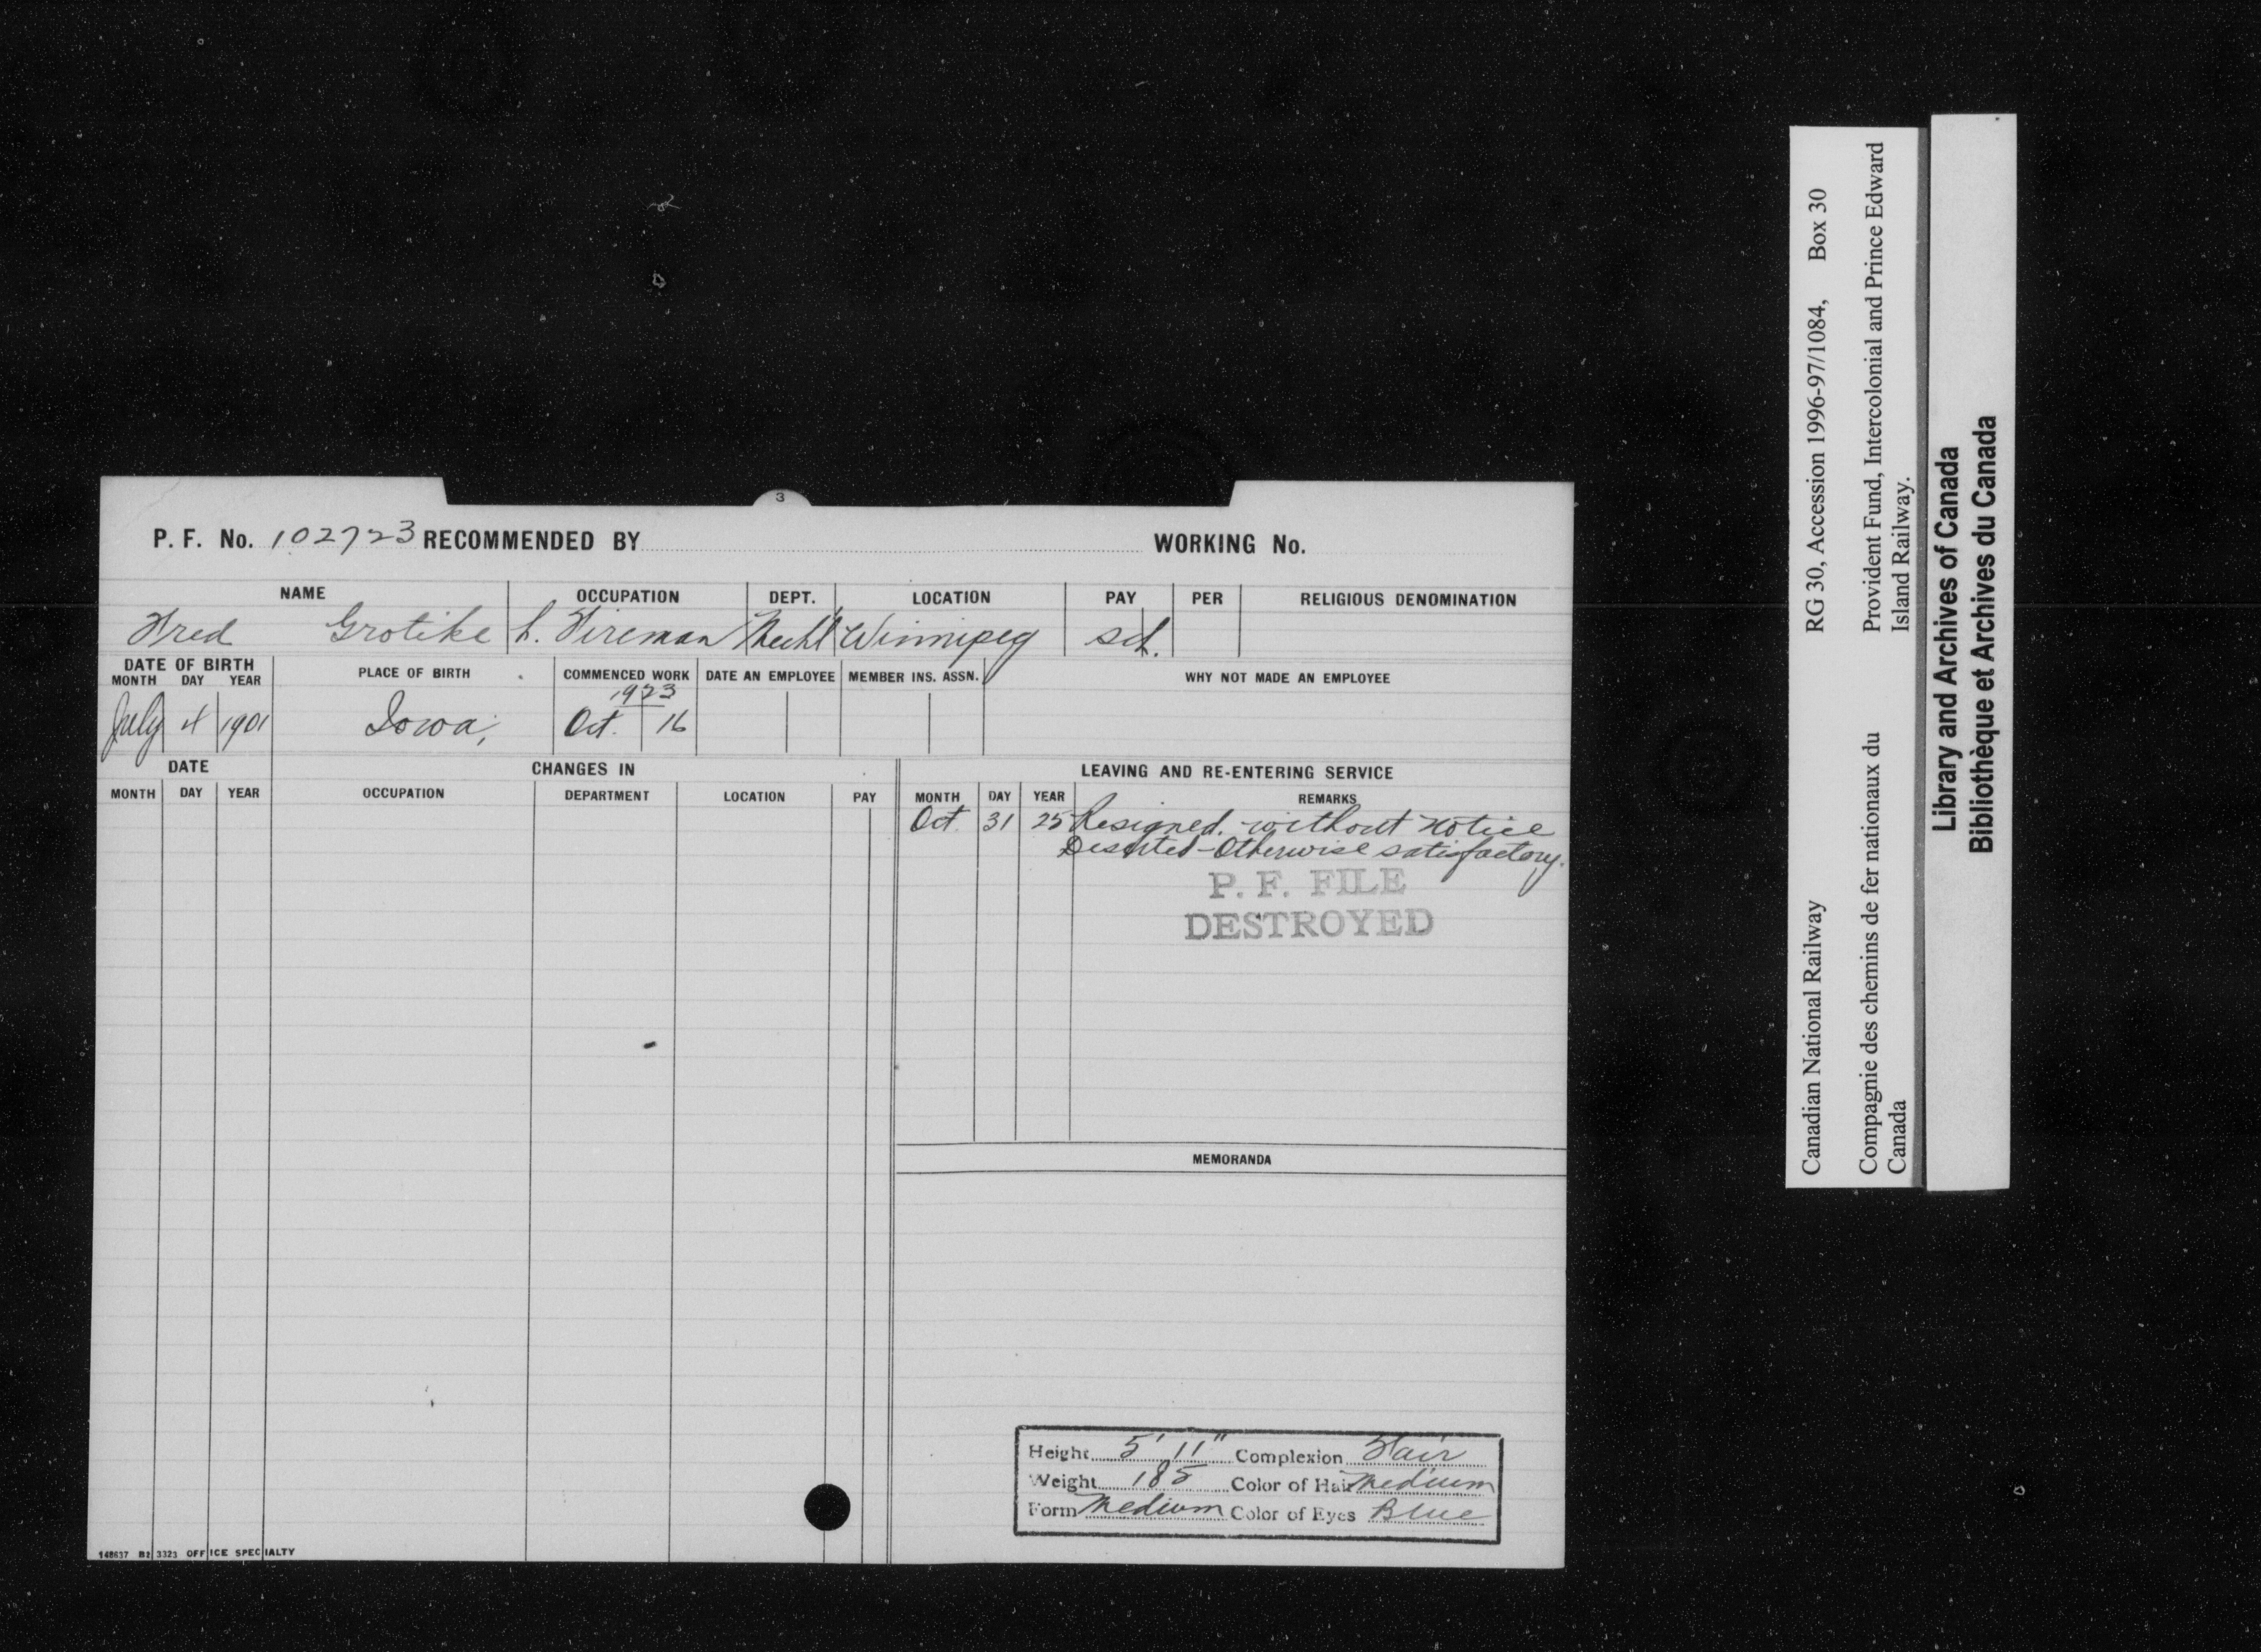 3
P. F. No. 102723 RECOMMENDED BY WORKING No.
NAME OCCUPATION DEPT. LOCATION PAY PER RELIGIOUS DENOMINATION
Fred Grotike L. Fireman Mechl Winnipeg Sch.
DATE OF BIRTH PLACE OF BIRTH COMMENCED WORK DATE AN EMPLOYEE MEMBER INS. ASSN. WHY NOT MADE AN EMPLOYEE
MONTH DAY YEAR
1923
July 4 1901 Iowa, Oct. 16
DATE CHANGES IN LEAVING AND RE-ENTERING SERVICE
MONTH DAY YEAR OCCUPATION DEPARTMENT LOCATION PAY MONTH DAY YEAR REMARKS
Oct. 31 25 Resigned. without notice
Deserted - Otherwise satisfactory.
P. F. FILE
DESTROYED
MEMORANDA
Height 5' 11" Complexion Fair
Weight 185 Color of Hair Medium
Form Medium Color of Eyes Blue
148637 3323 OFFICE SPECIALTY
Canadian National Railway RG 30, Accession 1996-97/1084, Box 30
Compagnie des chemins de fer nationaux du Canada
Provident Fund, Intercolonial and Prince Edward
Island Railway.
Library and Archives of Canada
Bibliothèque et Archives du Canada